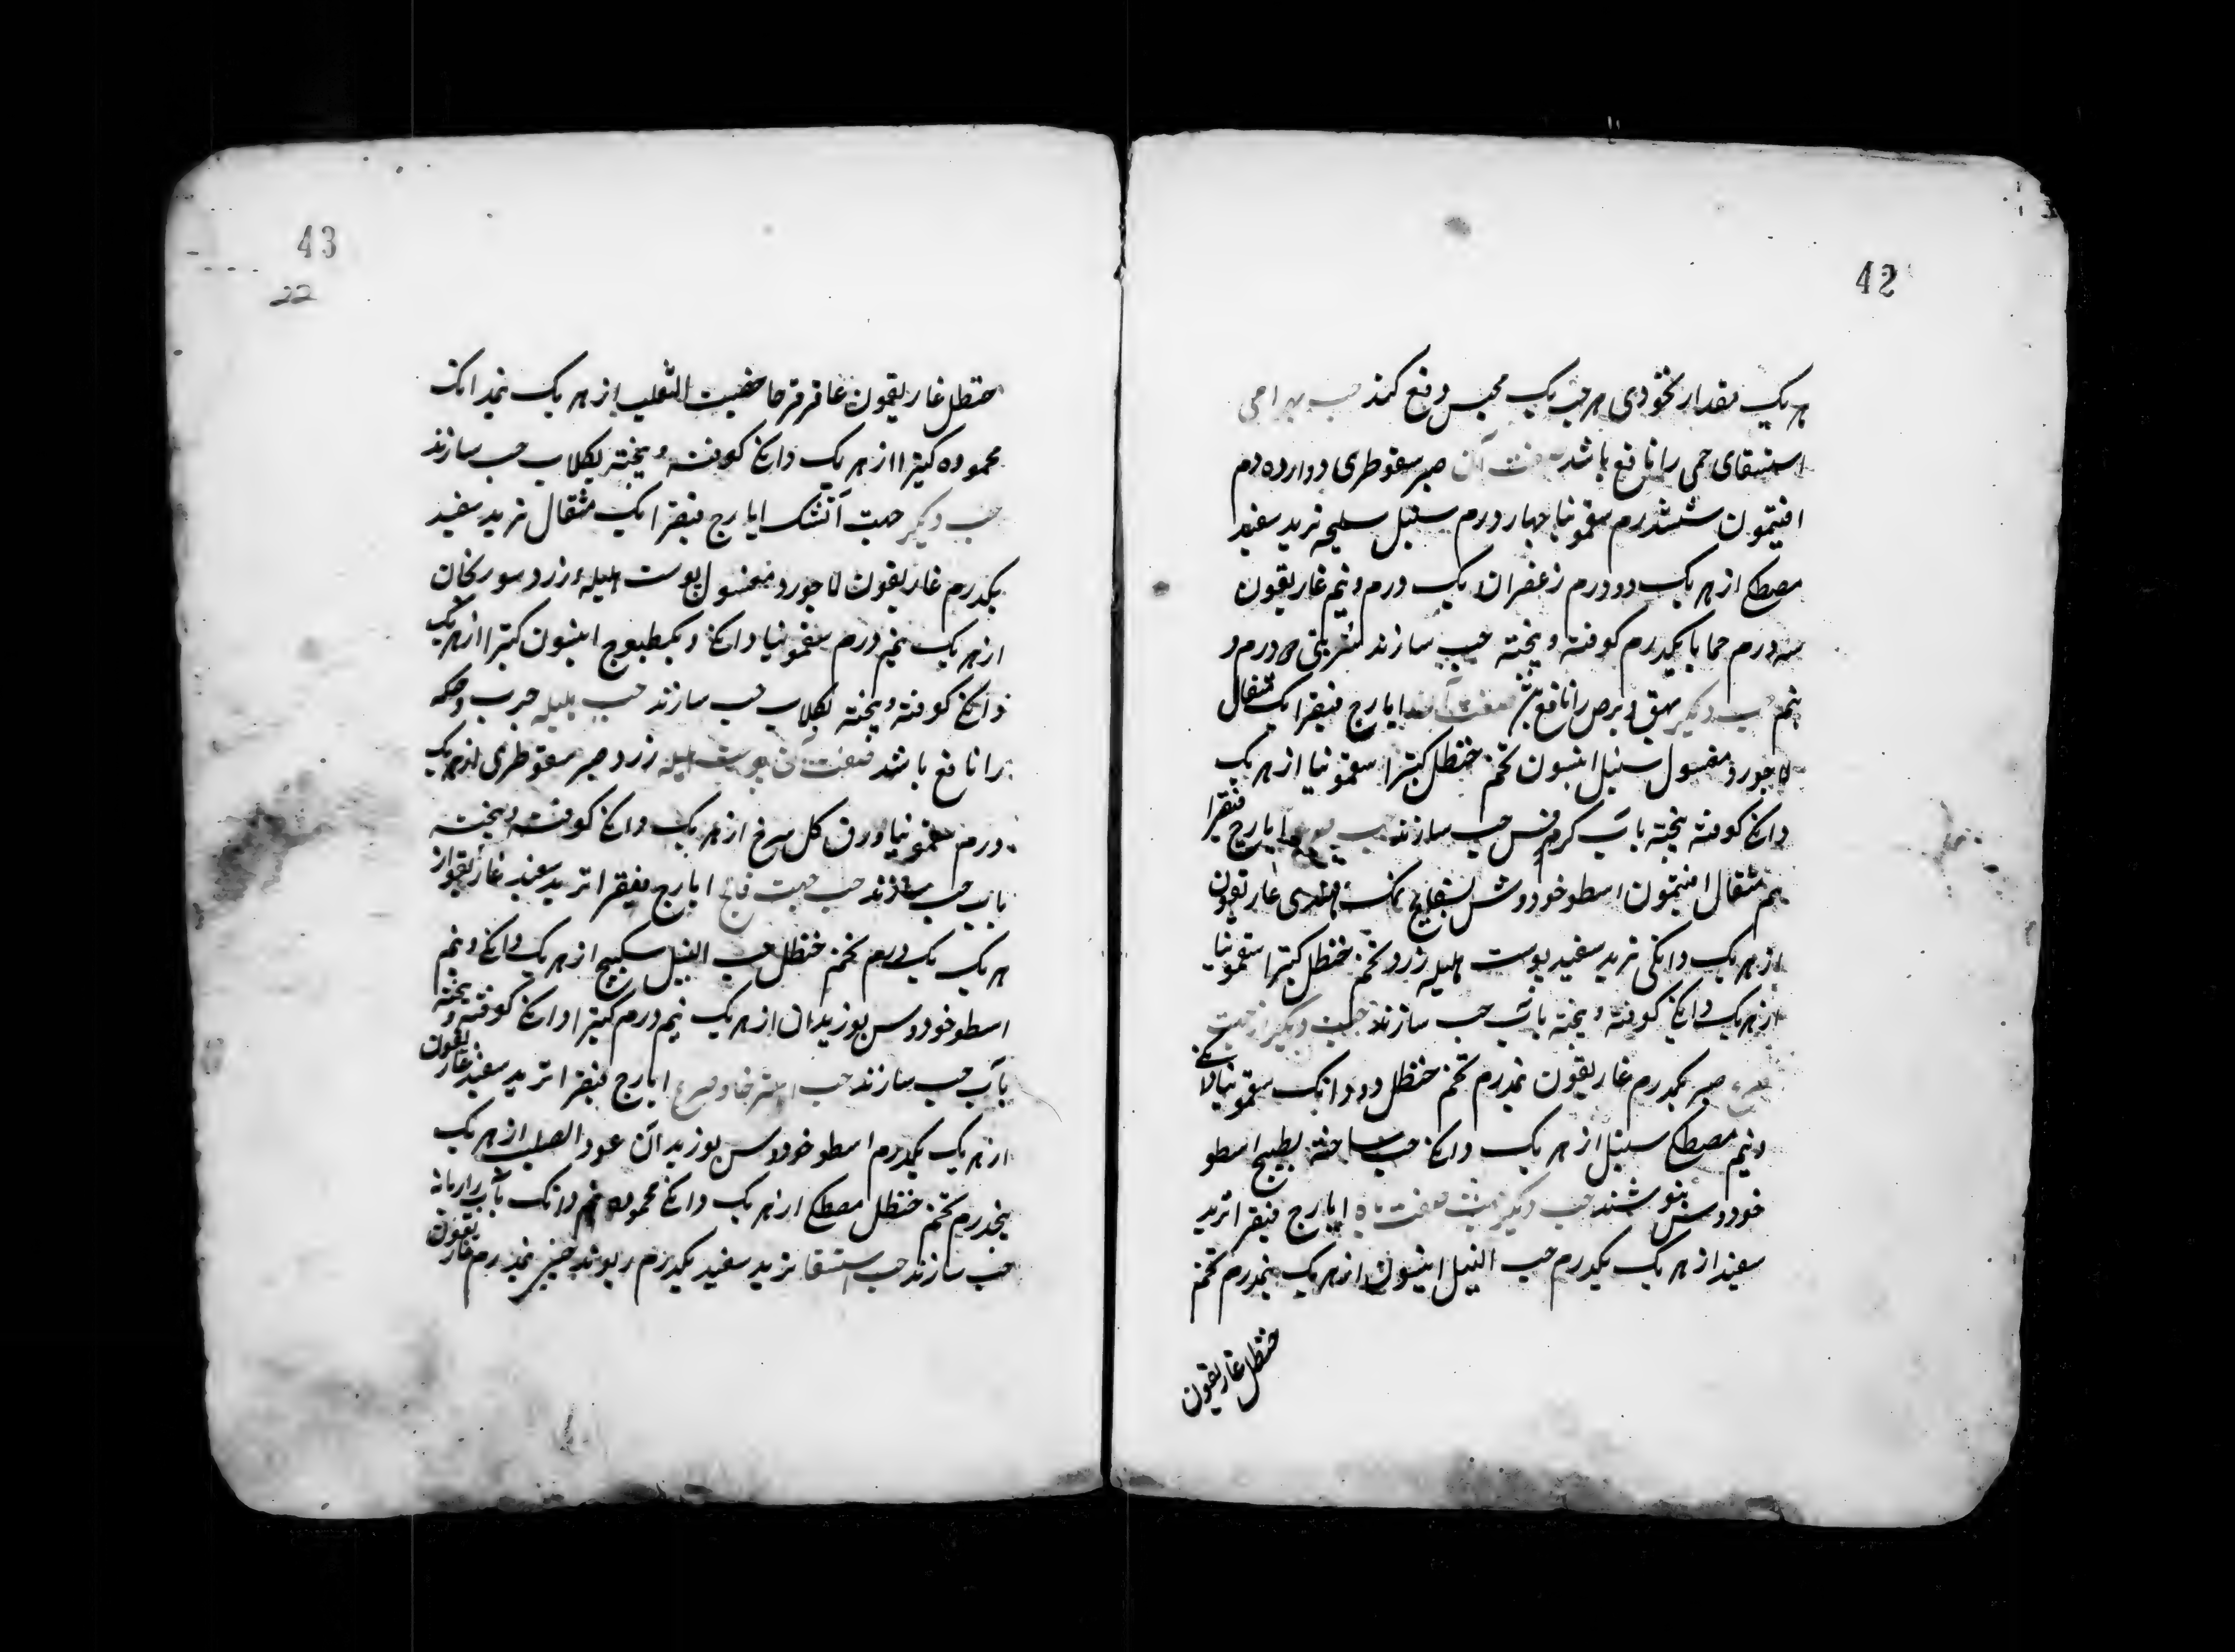 42
هر یک مقدار نخودی هر حب یک مجلس دفع کند حب بهرامی
استسقای حمی را نافع باشد صفت آن صبر سقوطری دوازده درم
افتیمون ششدرم سقمونیا چهار درم سنبل سلیخه تربد سفید
مصطکی از هر یک دو درم زعفران یک درم و نیم غاریقون
سه درم حماما یکدرم کوفته و بیخته حب سازند شربتی دو درم و
نیم حب دیگر بهق و برص را نافع صفت ایارج فیقرا یک مثقال
لاجورد مغسول سنبل انیسون تخم حنظل کتیرا سقمونیا از هر یک
دانکی کوفته بیخته بآب کرفس حب سازند حب ایارج فیقرا
نیم مثقال افتیمون اسطوخودوش بسفایج نمک هندی غاریقون
از هر یک دانکی تربد سفید پوست هلیله زرد تخم حنظل کتیرا سقمونیا
از هر یک دانکی کوفته و بیخته بآب حب سازند حب دیگر از جهت
صرع صبر یکدرم غاریقون نیمدرم تخم حنظل دو دانک سقمونیا دانکی
و نیم مصطکی سنبل از هر یک دانکی حب ساخته بطبیخ اسطو
خودوس بنوشند حب دیگر صفت ایارج فیقرا تربد
سفید از هر یک یکدرم حب النیل انیسون از هر یک نیمدرم تخم
حنظل غاریقون
43
22
حنظل غاریقون عاقرقرحا خصیت الثعلب از هر یک نیمدانک
محموده کتیرا از هر یک دانکی کوفته و بیخته بکلاب حب سازند
حب دیگر جهت آتشک ایارج فیقرا یک مثقال تربد سفید
یکدرم غاریقون لاجورد مغسول پوست هلیلهٔ زرد سورنجان
از هر یک نیم درم سقمونیا دانکی و یکطسوج انیسون کتیرا از هر یک
دانکی کوفته و بیخته بکلاب حب سازند حب هلیله جرب و حکه
را نافع باشد صفت آن پوست هلیله زرد صبر سقوطری از هر یک
درم سقمونیا ورق کل سرخ از هر یک دانکی کوفته و بیخته
بآب حب سازند حب جهت فالج ایارج فیقرا تربد سفید غاریقون از
هر یک یک درم تخم حنظل حب النیل سکبینج از هر یک دانکی و نیم
اسطوخودوس بوزیدان از هر یک نیم درم کتیرا دانکی کوفته و بیخته
بآب حب سازند حب استرخا و صرع ایارج فیقرا تربد سفید غاریقون
از هر یک یکدرم اسطوخودوس بوزیدان عود الصلیب از هر یک
نیمدرم تخم حنظل مصطکی از هر یک دانکی محموده نیم دانک بآب رازیانه
حب سازند حب استسقا تربد سفید یکدرم ریوند چینی نیمدرم غاریقون